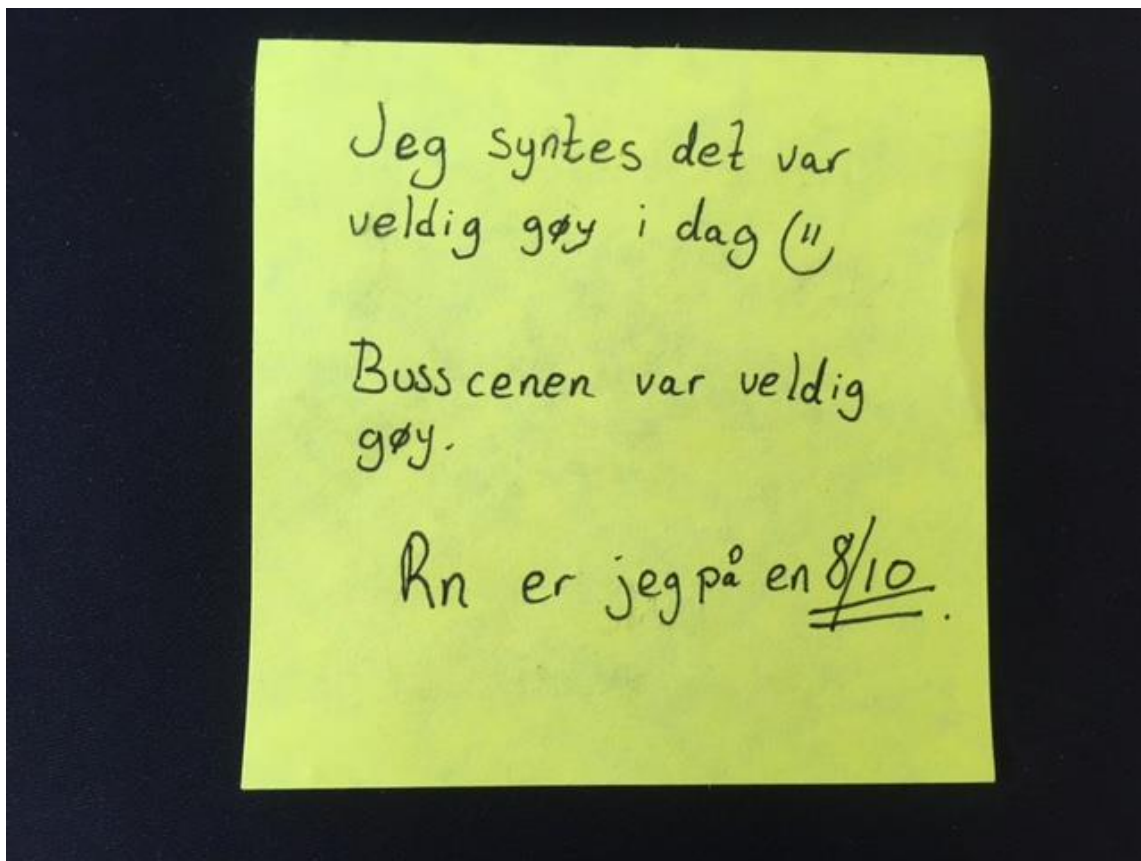 Jeg syntes det var
veldig gøy i dag (")
Busscenen var veldig
gøy.
Rn er jeg på en 8/10.